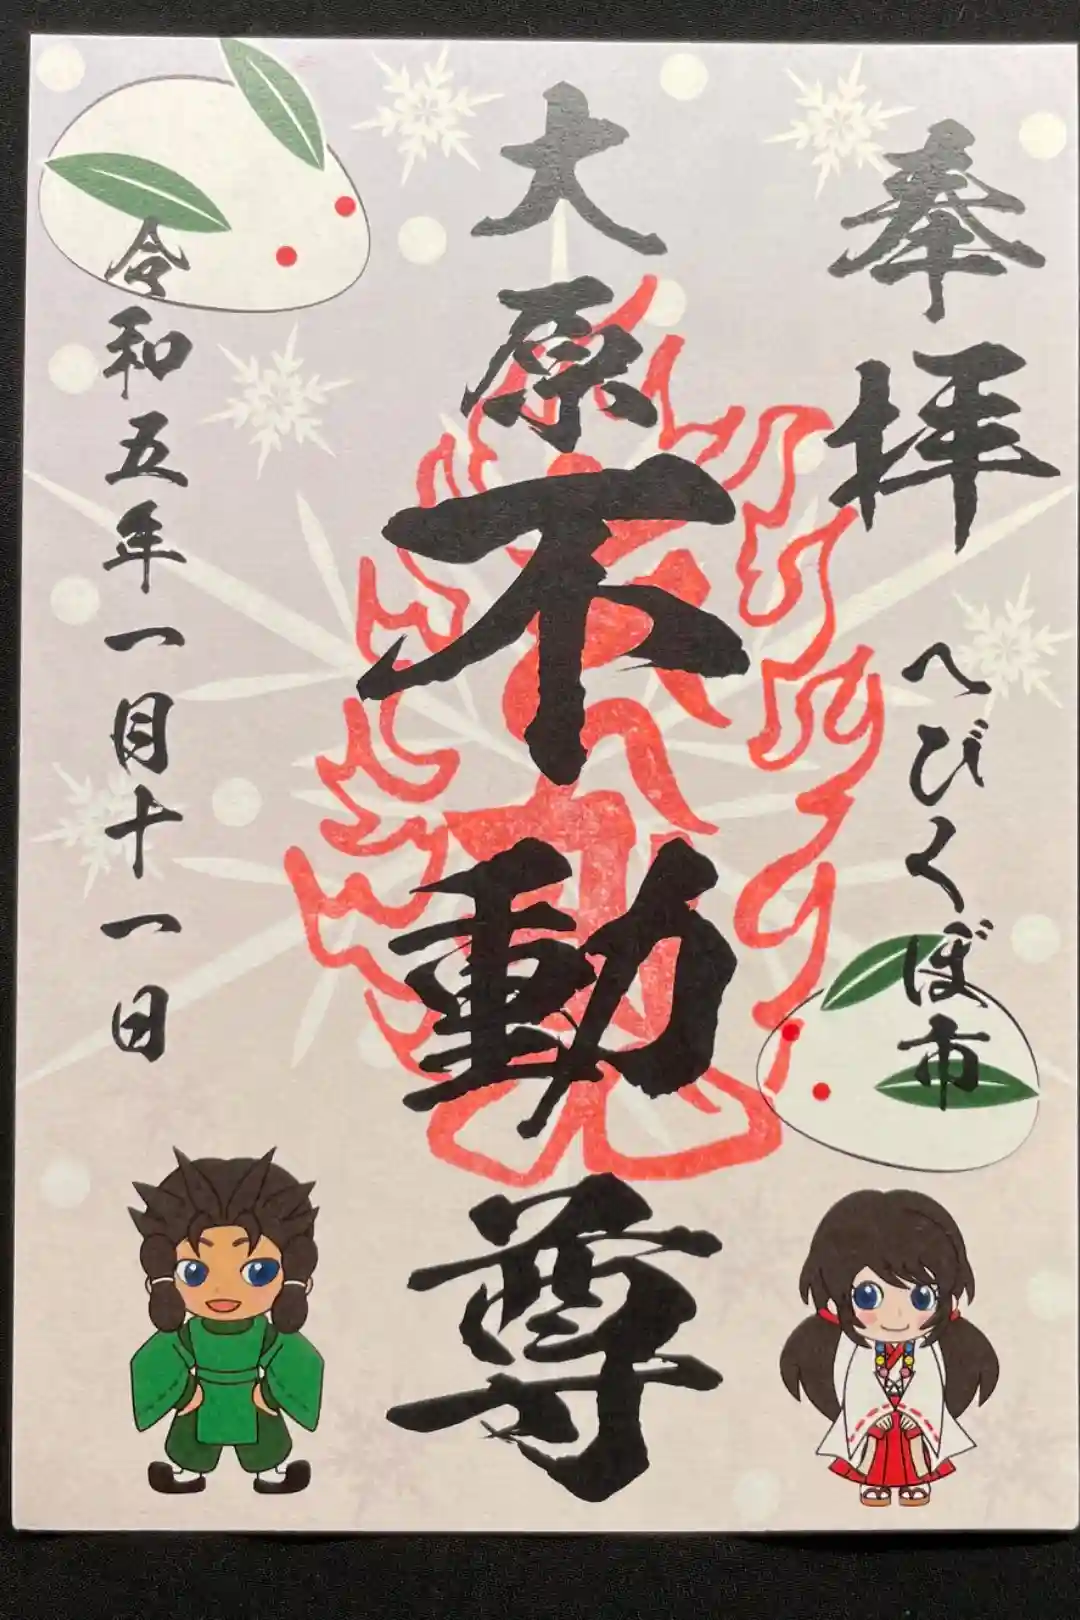 奉拝
へびくぼ市
大原不動尊
令和五年一月十一日